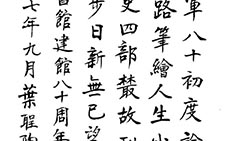 八十初度
路筆繪人生
史四部叢故刊
步日新無已望
館建館八十周年
七年九月葉聖陶